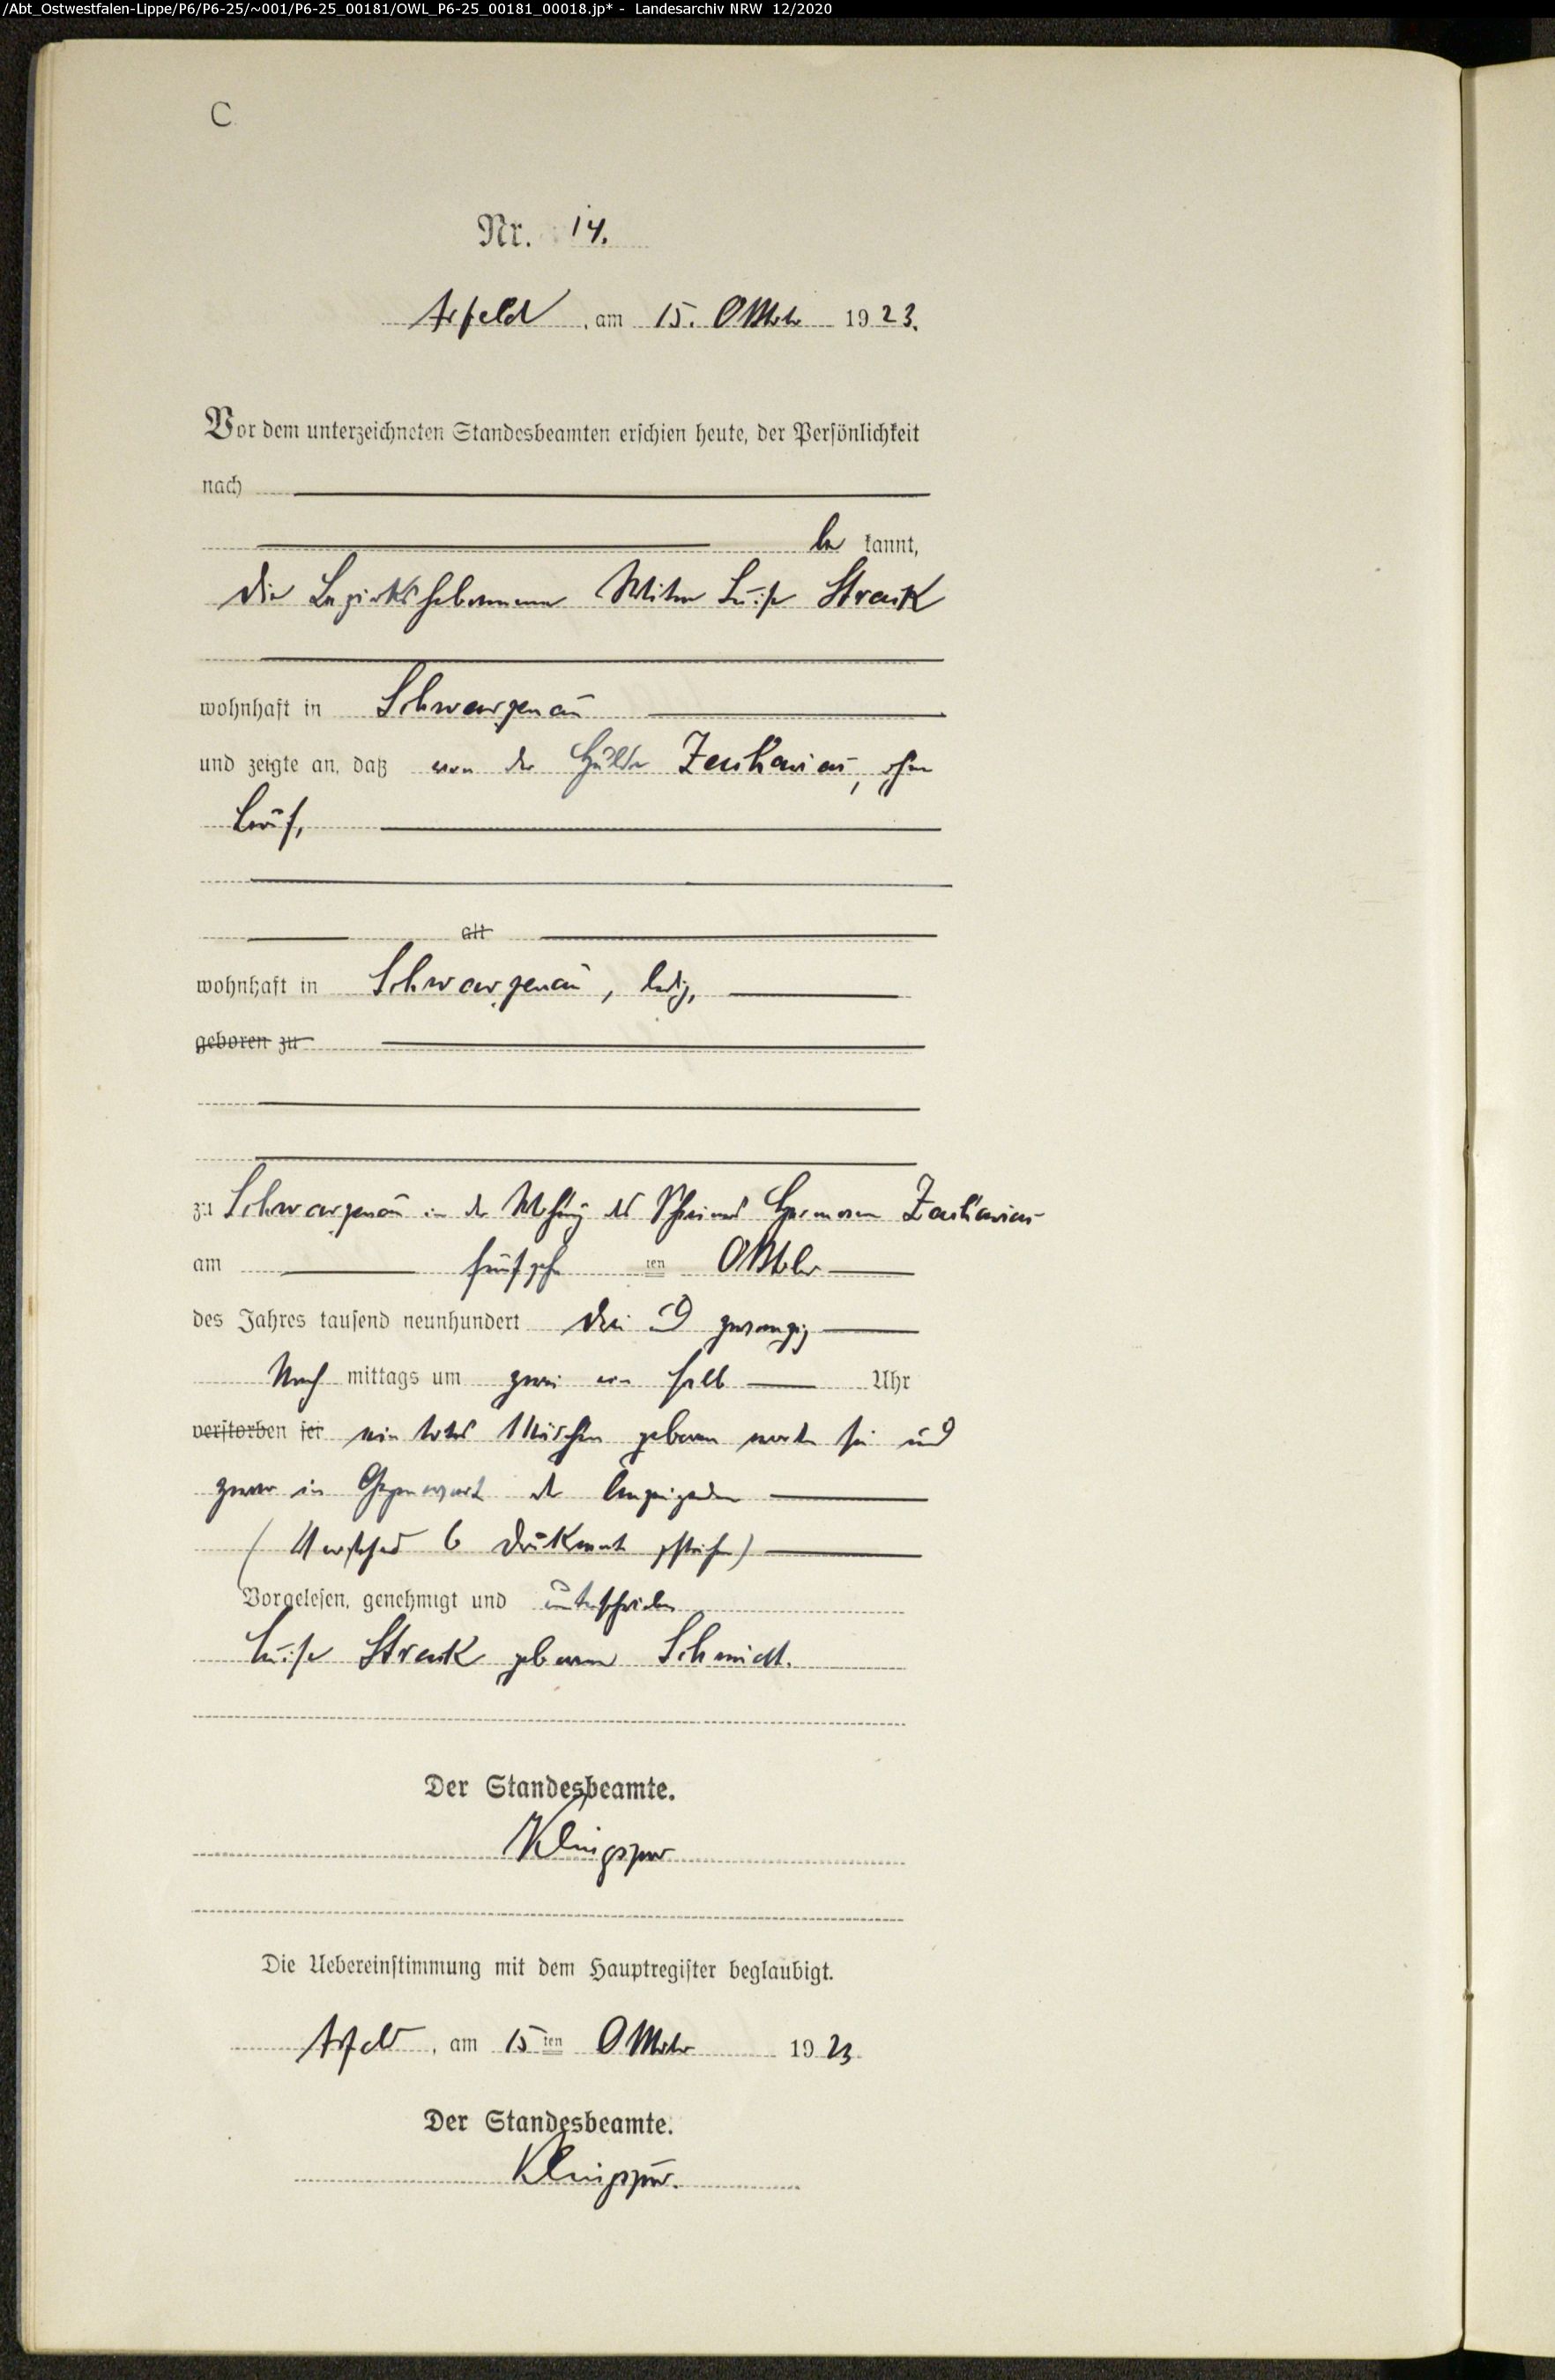 /Abt_Ostwestfalen-Lippe/P6/P6-25/~001/P6-25_00181/OWL_P6-25_00181_00018.jp* - Landesarchiv NRW 12/2020
C
Nr. 14.
Arfeld, am 15. Oktober 1923.
Vor dem unterzeichneten Standesbeamten erschien heute, der Persönlichkeit
nach
be kannt,
die Bezirkshebamme Witwe Luise Strack
wohnhaft in Schwarzenau
und zeigte an, daß von der Hulda Zacharias, ohne
Beruf,
alt
wohnhaft in Schwarzenau, ledig,
geboren zu
zu Schwarzenau in der Wohnung des Schreiners Hermann Zacharias
am fünfzehn ten Oktober
des Jahres tausend neunhundert drei und zwanzig
Nach mittags um zwei ein halb Uhr
verstorben sei ein totes Mädchen geboren worden sei und
zwar in Gegenwart der Anzeigenden
(Vorstehend 6 Druckworte gestrichen)
Vorgelesen, genehmigt und unterschrieben
Luise Strack geborene Schmidt.
Der Standesbeamte.
Klingspor
Die Uebereinstimmung mit dem Hauptregister beglaubigt.
Arfeld, am 15ten Oktober 1923
Der Standesbeamte.
Klingspor.